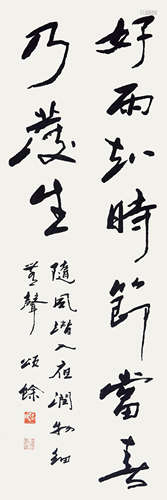 好雨知時節當春
乃發生
隨風潛入夜潤物細
無聲 頌餘